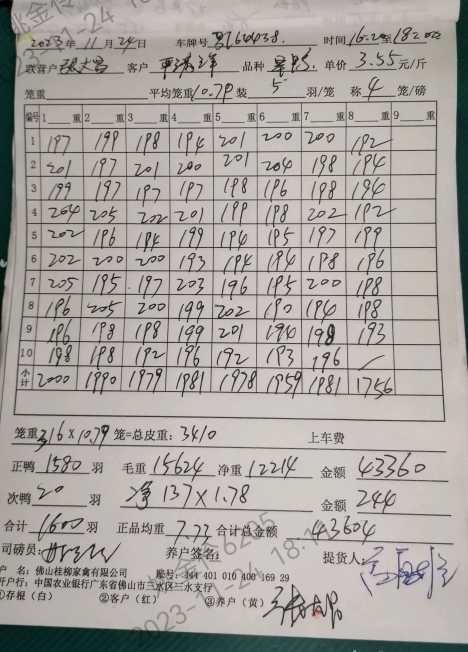 2023年11月24日 车牌号 时间16:20至18:20
联营户 客户 品种 单价3.55元/斤
笼重 平均笼重10.79装5羽/笼 称4笼/磅
编号 1 重 2 重 3 重 4 重 5 重 6 重 7 重 8 重 9 重
1 197 199 198 194 201 200 200 192
2 201 197 201 200 201 204 198 194
3 199 197 197 197 198 196 198 194
4 204 205 202 201 199 198 202 192
5 202 196 194 199 194 195 197 199
6 202 200 200 193 194 194 198 196
7 205 195 197 203 196 195 200 198
8 196 205 200 199 202 190 194 198
9 196 198 198 199 201 194 198 193
10 198 198 192 196 192 193 196
小计 2000 1990 1979 1981 1978 1959 1981 1756
笼重316×10.79笼=总皮重:3410 上车费
正鸭1580羽 毛重15624净重12214 金额43360
次鸭20羽 净137×1.78 金额244
合计1600羽 正品均重7.73合计总金额43604
司磅员: 养户签名: 提货人:
户 名:佛山桂柳家禽有限公司 账号:444 401 010 400 169 29
开户行:中国农业银行广东省佛山市三水区三水支行
①存根(白) ②客户(红) ③养户(黄)